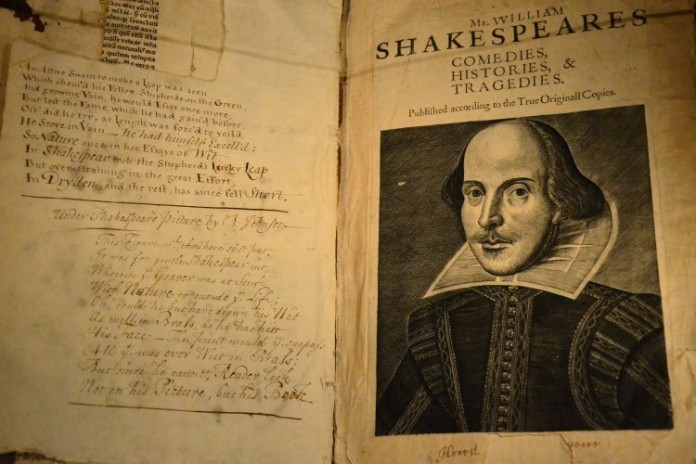 Swain to make a Leap was seen
Which sham'd his Fellow Shepherds on the Green,
And growing Vain, he would Essay once more,
But lost the Fame, which he had gain'd before;
Oft' did he try, at Length was forc'd to yeild
He Strove in Vain — he had himself Excell'd:
So Nature once in her Essays of Wit
In Shakespear took the Shepherd's Lucky Leap
But overstraining in the great Effort
In Dryden, and the rest, has since fell Short.
Under Shakespears Picture by Johnson
This Figure yt. thou here seest put,
It was for gentle Shakespear cut
Wherein ye Graver was at Strife
With Nature to outdo ye Life;
Oh! could he but have drawn his Wit
As well in Brass, as he has hitt
His Face — the Print would surpass
All yt was ever Writ in Brass;
But since he cannot, Reader look
Not on his Picture, but his Book
Mr. WILLIAM
SHAKESPEARES
COMEDIES,
HISTORIES, &
TRAGEDIES.
Published according to the True Originall Copies.